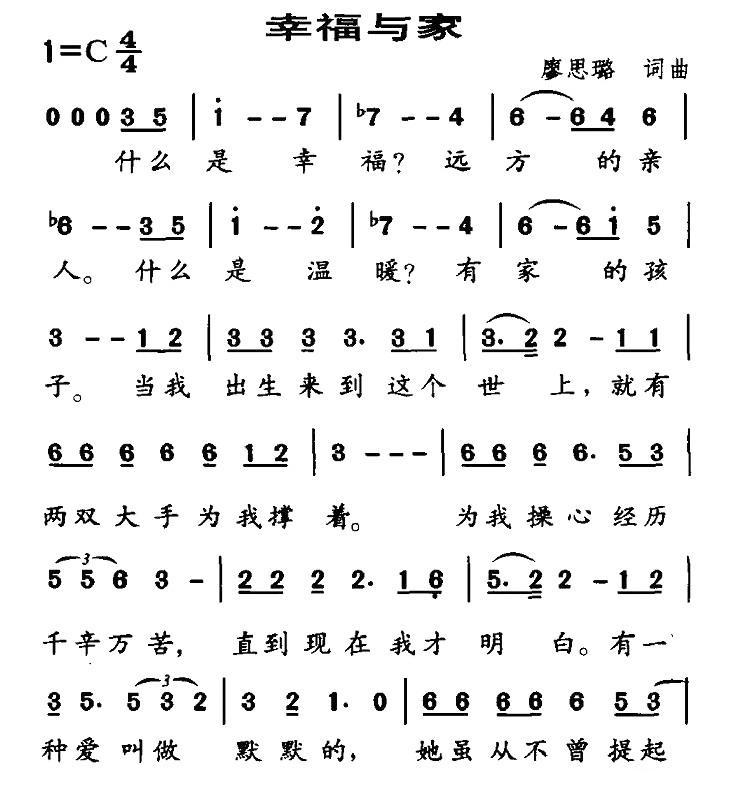 幸福与家
1=C 4/4
廖思璐 词曲
0 0 0 3 5 | i - - 7 | ♭7 - - 4 | 6 - 6 4 6 |
什么是 幸 福？远方 的亲
♭6 - - 3 5 | i - - 2 | ♭7 - - 4 | 6 - 6 i 5 |
人。什么是 温 暖？有家 的孩
3 - - 1 2 | 3 3 3 3. 3 1 | 3. 2 2 - 1 1 |
子。当我 出生来到这个世 上，就有
6 6 6 6 6 1 2 | 3 - - - | 6 6 6 6. 5 3 |
两双大手为我撑 着。 为我操心经历
3
5 5 6 3 - | 2 2 2 2. 1 6 | 5. 2 2 - 1 2 |
千辛万苦，直到现在我才明 白。有一
3
3 5. 5 3 2 | 3 2 1. 0 | 6 6 6 6 6 5 3 |
种爱叫做 默默的，她虽从不曾提起